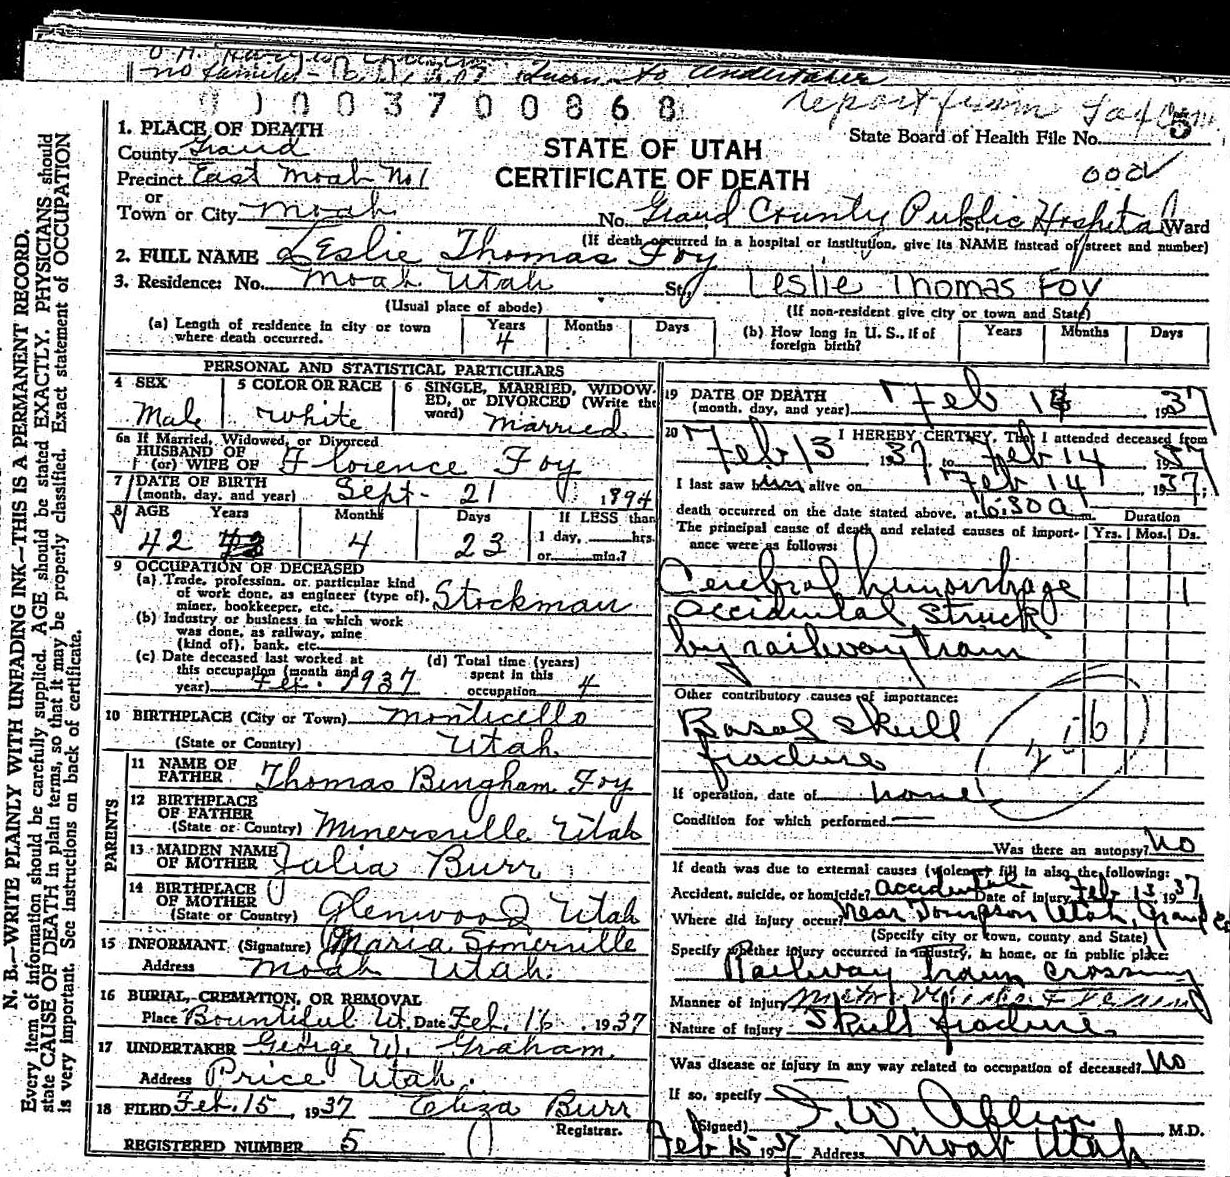 no family -
given to undertaker
0 0 0 3 7 0 0 8 6 8
report from
N. B.—WRITE PLAINLY WITH UNFADING INK—THIS IS A PERMANENT RECORD.
Every item of information should be carefully supplied. AGE should be stated EXACTLY. PHYSICIANS should
state CAUSE OF DEATH in plain terms, so that it may be properly classified. Exact statement of OCCUPATION
is very important. See instructions on back of certificate.
STATE OF UTAH
CERTIFICATE OF DEATH
State Board of Health File No. 5
1. PLACE OF DEATH
County Grand
Precinct East Moab No 1
or
Town or City Moab No. Grand County Public Hospital St. Ward
(If death occurred in a hospital or institution, give its NAME instead of street and number)
2. FULL NAME Leslie Thomas Foy
3. Residence: No. Moab Utah St. Leslie Thomas Foy
(Usual place of abode) (If non-resident give city or town and State)
(a) Length of residence in city or town where death occurred. Years 4 Months Days
(b) How long in U. S., if of foreign birth? Years Months Days
PERSONAL AND STATISTICAL PARTICULARS
4 SEX Male
5 COLOR OR RACE White
6 SINGLE, MARRIED, WIDOWED, or DIVORCED (Write the word) Married
6a If Married, Widowed, or Divorced
HUSBAND OF
(or) WIFE OF Florence Foy
7 DATE OF BIRTH
(month, day, and year) Sept- 21 1894
8 AGE Years 42 Months 4 Days 23 If LESS than 1 day, hrs. or min.?
9 OCCUPATION OF DECEASED
(a) Trade, profession, or particular kind
of work done, as engineer (type of),
miner, bookkeeper, etc. Stockman
(b) Industry or business in which work
was done, as railway, mine
(kind of), bank, etc.
(c) Date deceased last worked at
this occupation (month and
year) Feb. 1937
(d) Total time (years)
spent in this
occupation 4
10 BIRTHPLACE (City or Town) Monticello
(State or Country) Utah
PARENTS
11 NAME OF
FATHER Thomas Bingham Foy
12 BIRTHPLACE
OF FATHER
(State or Country) Minersville Utah
13 MAIDEN NAME
OF MOTHER Julia Burr
14 BIRTHPLACE
OF MOTHER
(State or Country) Glenwood Utah
15 INFORMANT (Signature) Maria Somerville
Address Moab Utah.
16 BURIAL, CREMATION, OR REMOVAL
Place Bountiful Ut. Date Feb. 16 1937
17 UNDERTAKER George W. Graham
Address Price Utah.
18 FILED Feb. 15, 1937 Eliza Burr
Registrar.
REGISTERED NUMBER 5
19 DATE OF DEATH
(month, day, and year) Feb 14 1937
20 I HEREBY CERTIFY, That I attended deceased from
Feb 13 1937 to Feb 14 1937
I last saw him alive on Feb 14 1937,
death occurred on the date stated above, at 6:30 a m.
The principal cause of death and related causes of importance were as follows: Duration Yrs. Mos. Ds.
Cerebral hemorrhage 1
Accidental struck
by railway train
Other contributory causes of importance:
Basal skull
fracture
If operation, date of none
Condition for which performed
Was there an autopsy? No
If death was due to external causes (violence) fill in also the following:
Accident, suicide, or homicide? Accidental Date of injury Feb 13 1937
Where did injury occur? Near Tompson Utah, Grand Co
(Specify city or town, county and State)
Specify whether injury occurred in industry, in home, or in public place:
Railway train crossing
Manner of injury
Nature of injury Skull fracture
Was disease or injury in any way related to occupation of deceased? No
If so, specify
(Signed) M.D.
Feb 15 1937 Address Moab Utah